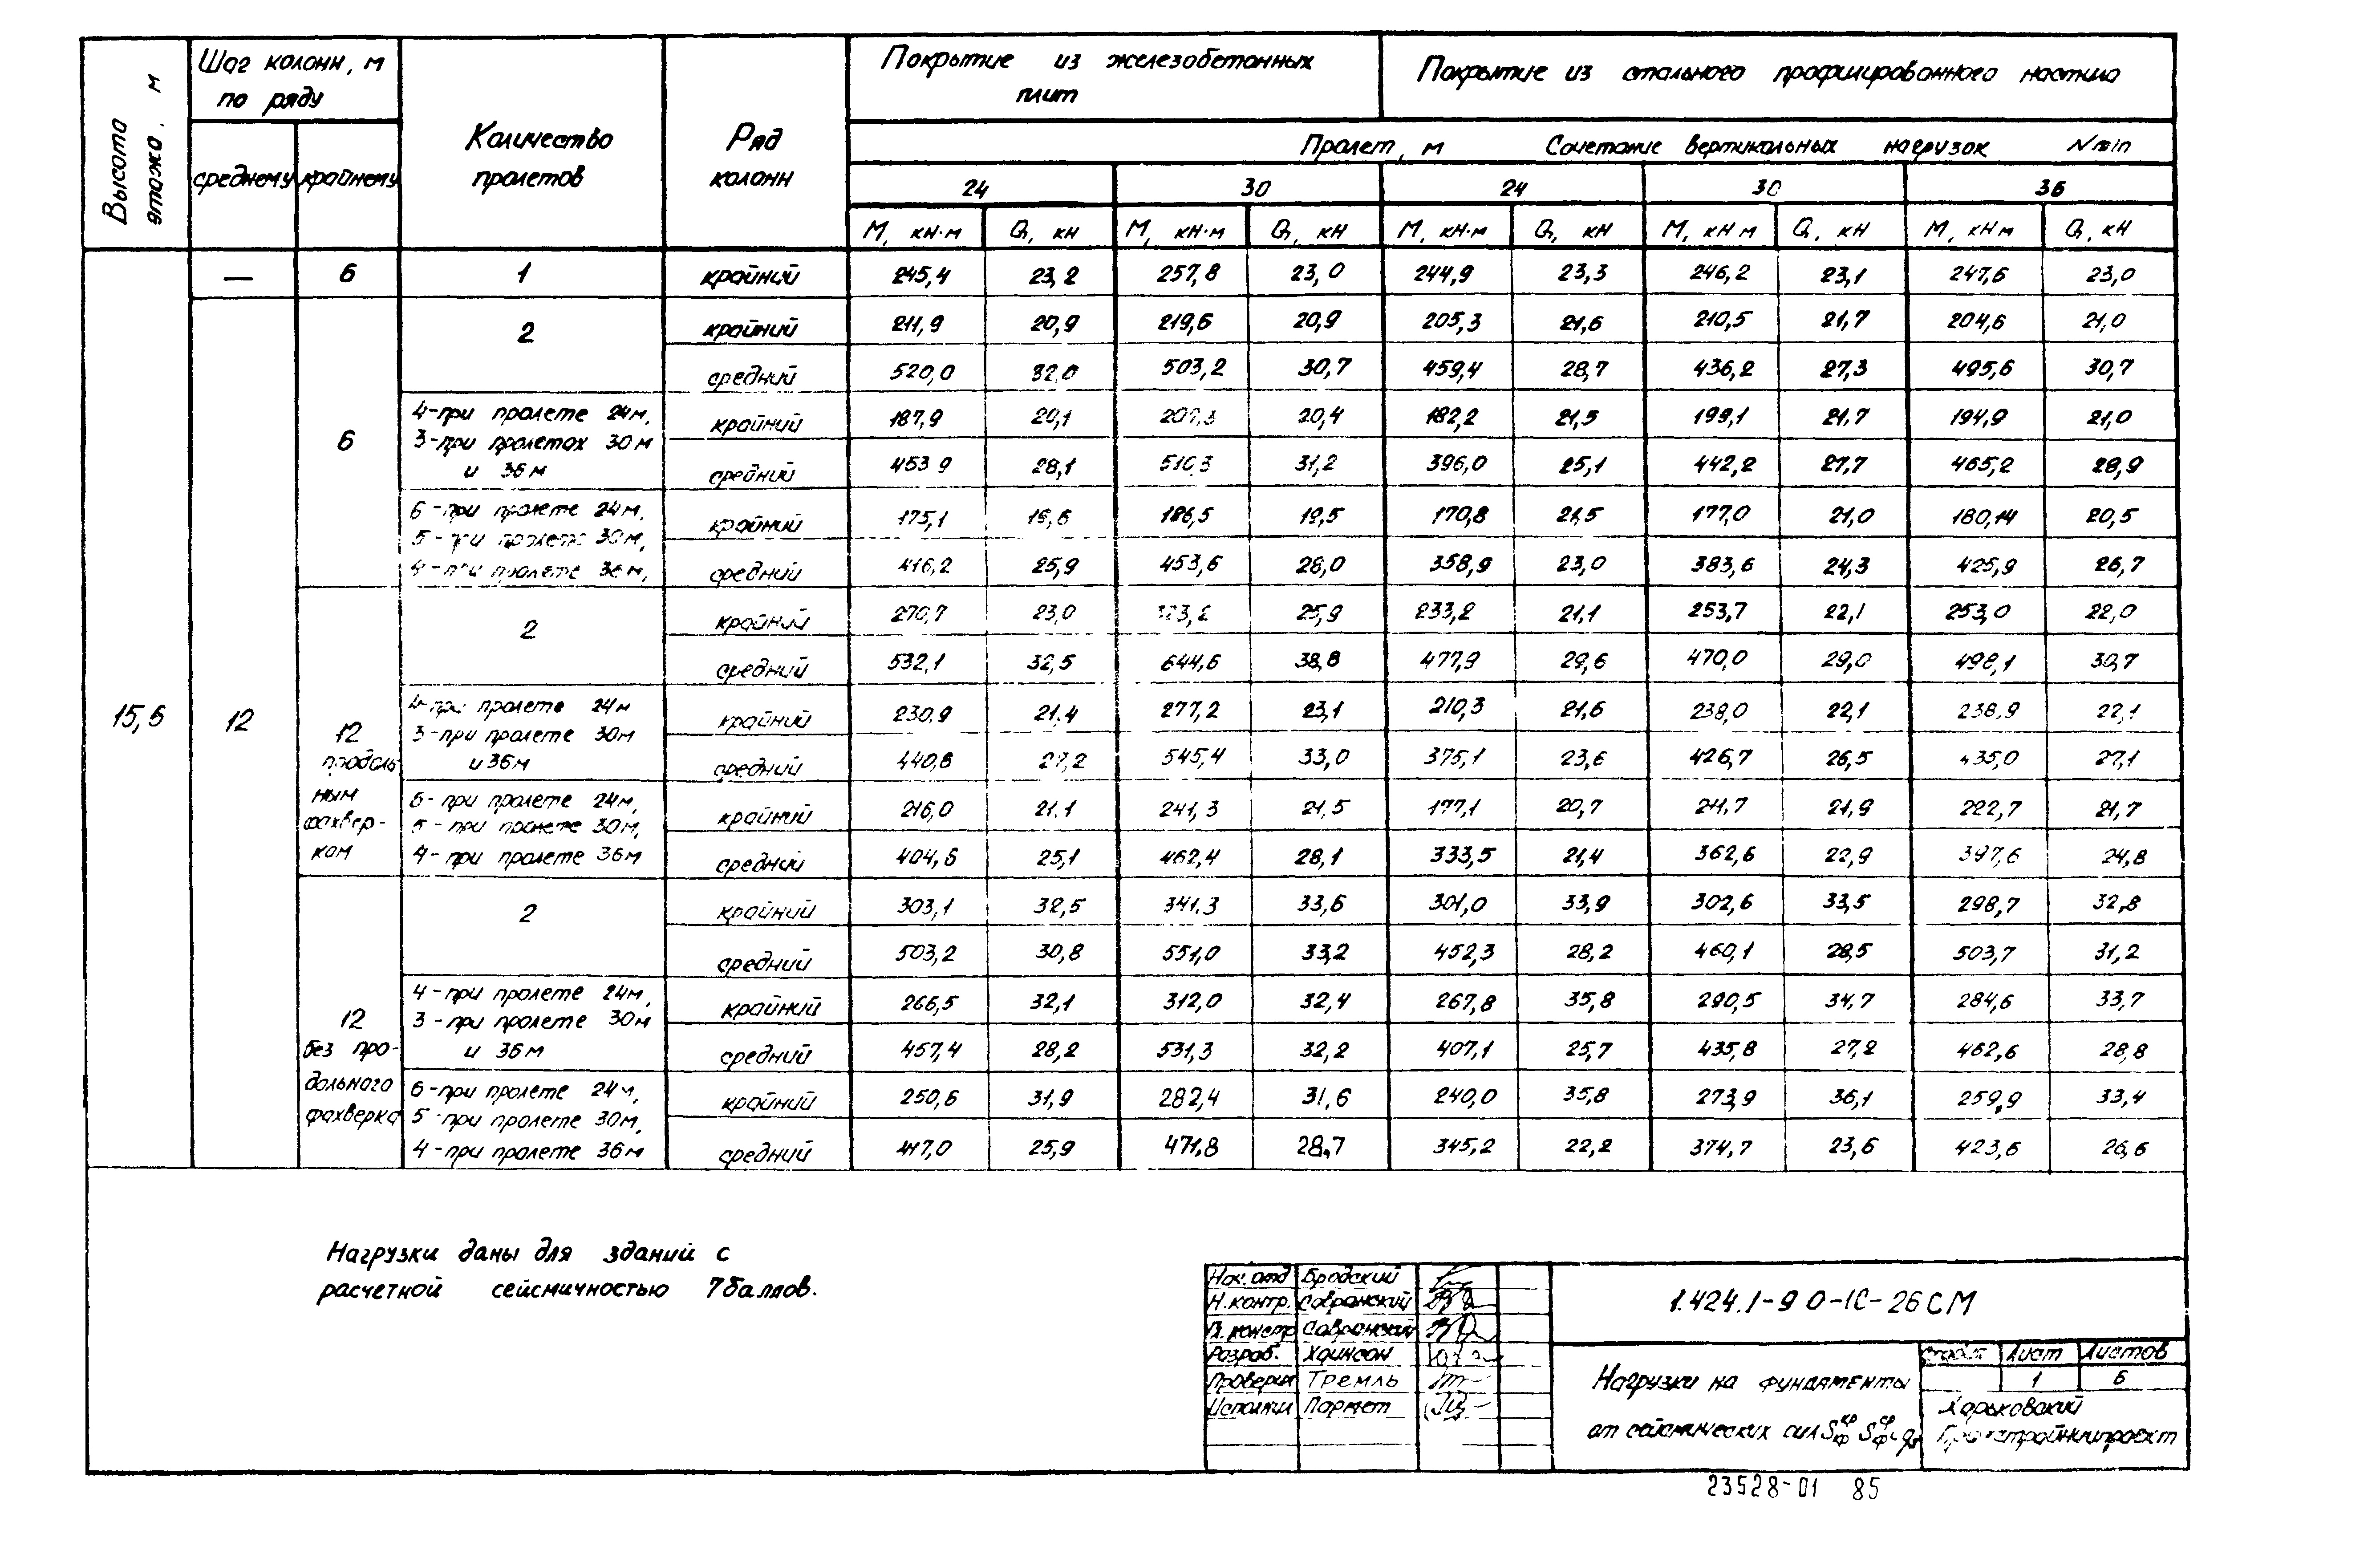 Высота этажа, м
Шаг колонн, м по ряду
среднему крайнему
Количество пролетов
Ряд колонн
Покрытие из железобетонных плит
Покрытие из стального профилированного настила
Пролет, м Сочетание вертикальных нагрузок Nmin
24 30 24 30 36
М, кН·м Q, кН М, кН·м Q, кН М, кН·м Q, кН М, кН м Q, кН М, кН м Q, кН
— 6 1 крайний 245,4 23,2 257,8 23,0 244,9 23,3 246,2 23,1 247,6 23,0
2 крайний 211,9 20,9 219,6 20,9 205,3 21,6 210,5 21,7 204,6 21,0
средний 520,0 32,0 503,2 30,7 459,4 28,7 436,2 27,3 495,6 30,7
6
4-при пролете 24м,
3-при пролетах 30м
и 36м
крайний 187,9 20,1 20,4 182,2 21,5 199,1 21,7 194,9 21,0
средний 453 9 28,1 510,3 31,2 396,0 25,1 442,2 27,7 465,2 28,9
6-при пролете 24м,
5-при пролете 30м,
4-при пролете 36м,
крайний 175,1 19,6 186,5 19,5 170,8 21,5 177,0 21,0 180,14 20,5
средний 416,2 25,9 453,6 28,0 358,9 23,0 383,6 24,3 425,9 26,7
2 крайний 270,7 23,0 25,9 233,2 21,1 253,7 22,1 253,0 22,0
средний 532,1 32,5 644,6 38,8 477,9 29,6 470,0 29,0 498,1 30,7
15,6 12
12
продоль
ным
фахвер-
ком
4-при пролете 24м
3-при пролете 30м
и 36м
крайний 230,9 21,4 277,2 23,1 210,3 21,6 238,0 22,1 238,9 22,1
средний 440,8 27,2 545,4 33,0 375,1 23,6 426,7 26,5 435,0 27,1
6-при пролете 24м,
5-при пролете 30м,
4-при пролете 36м
крайний 216,0 21,1 241,3 21,5 177,1 20,7 211,7 21,9 222,7 21,7
средний 404,6 25,1 462,4 28,1 333,5 21,4 362,6 22,9 397,6 24,8
2 крайний 303,1 32,5 341,3 33,6 301,0 33,9 302,6 33,5 298,7 32,8
средний 503,2 30,8 551,0 33,2 452,3 28,2 460,1 28,5 503,7 31,2
12
без про-
дольного
фахверка
4-при пролете 24м,
3-при пролете 30м
и 36м
крайний 266,5 32,1 312,0 32,4 267,8 35,8 290,5 34,7 284,6 33,7
средний 457,4 28,2 531,3 32,2 407,1 25,7 435,8 27,2 462,6 28,8
6-при пролете 24м,
5-при пролете 30м,
4-при пролете 36м
крайний 250,6 31,9 282,4 31,6 240,0 35,8 273,9 36,1 259,9 33,4
средний 417,0 25,9 471,8 28,7 345,2 22,2 374,7 23,6 423,6 26,6
Нагрузки даны для зданий с
расчетной сейсмичностью 7 баллов.
Нач. отд Бродский
Н. контр. Савранский
Гл. констр Савранский
Разраб. Хаинсон
Проверил Тремль
Исполнил Пармет
1.424.1-9 0-1С-26СМ
Нагрузки на фундаменты
от сейсмических сил
Стадия Лист Листов
1 6
Харьковский
Промстройниипроект
23528-01 85